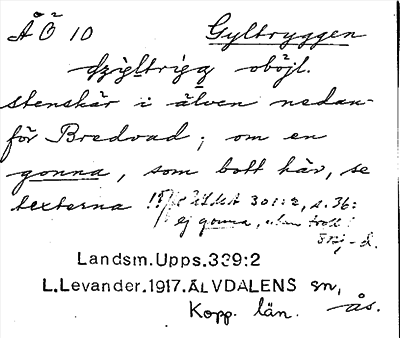 ÅÖ² 10 Gyltryggen
oböjl.
stenskär i älven nedan-
för Bredvad; om en
gonna, som bott här, se
texterna !! 301:2, s. 36:
ej gonna, utan troll!
Landsm.Upps.339:2
L.Levander.1917.ÄLVDALENS sn,
Kopp. län. ås.